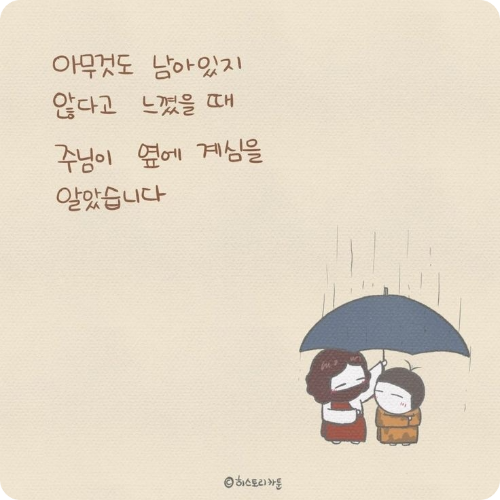 아무것도 남아있지
않다고 느꼈을 때
주님이 옆에 계심을
알았습니다
©히스토리카툰